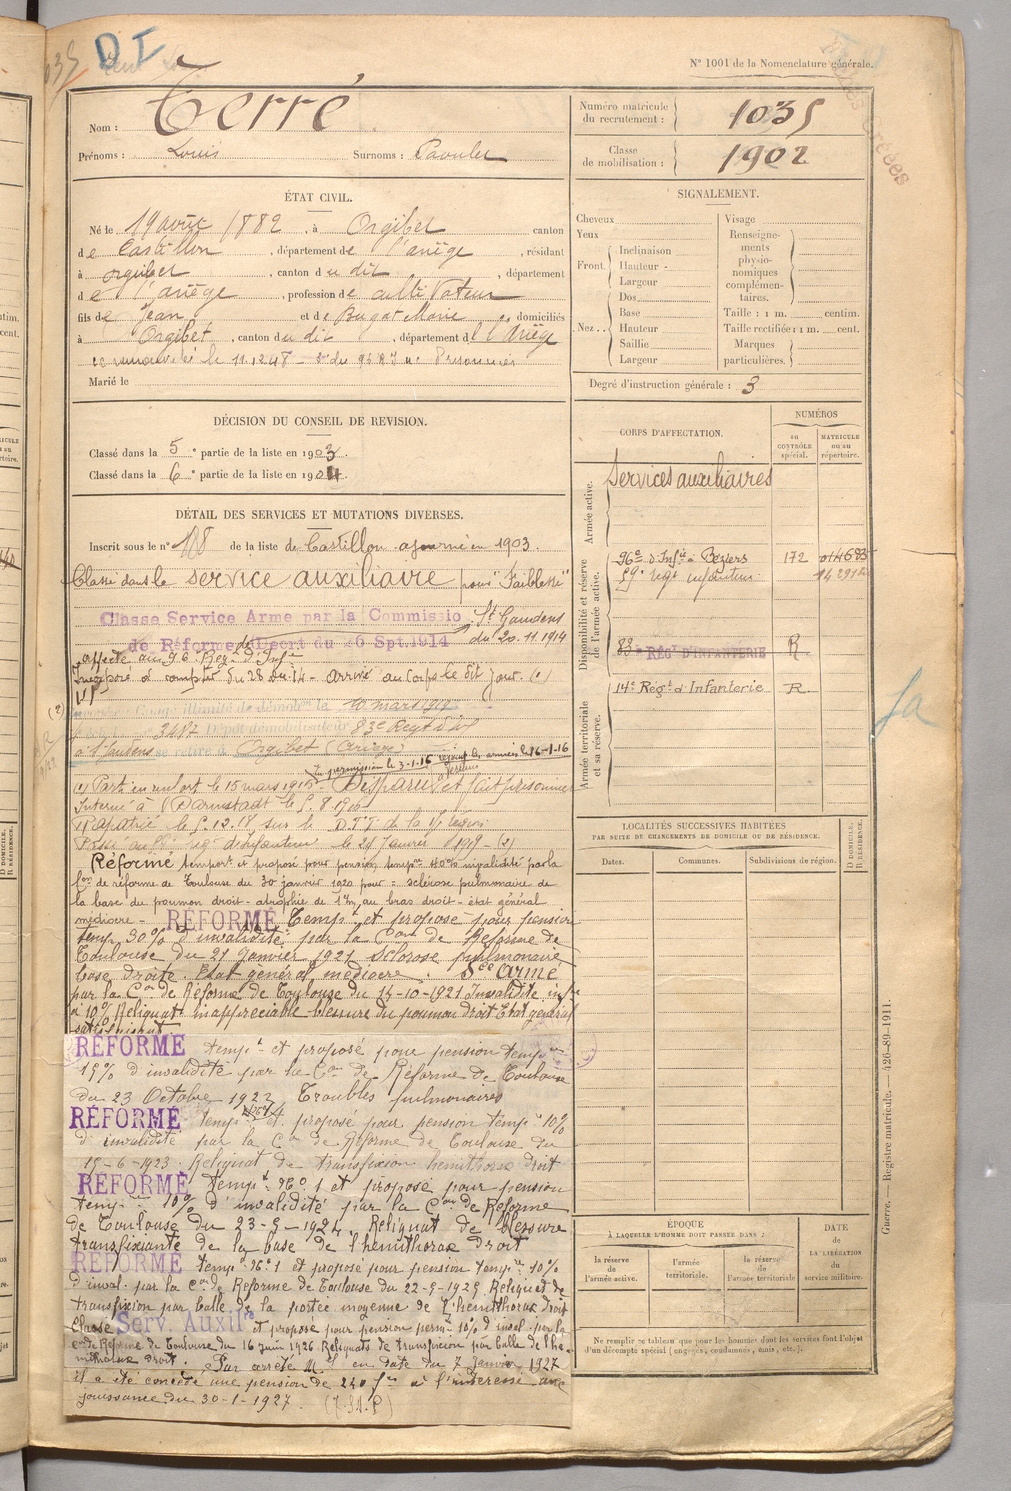 035
D I
N° 1001 de la Nomenclature générale.
Nom : Terré
Prénoms : Louis Surnoms : Paoulet
Numéro matricule du recrutement : 1035
Classe de mobilisation : 1902
ÉTAT CIVIL.
Né le 19 août 1882, à Orgibet canton
de Castillon, département de l'ariège, résidant
à orgibet, canton du dit, département
de l'ariège, profession de cultivateur
fils de Jean et de Bugat Marie domiciliés
à Orgibet, canton du dit, département de l'Ariège
le 11.12.48
Marié le
SIGNALEMENT.
Cheveux
Yeux
Front. Inclinaison
Hauteur
Largeur
Nez. Dos
Base
Hauteur
Saillie
Largeur
Visage
Renseignements physionomiques complémentaires.
Taille : 1 m. centim.
Taille rectifiée : 1 m. cent.
Marques particulières.
Degré d'instruction générale : 3
DÉCISION DU CONSEIL DE REVISION.
Classé dans la 5e partie de la liste en 1903.
Classé dans la 6e partie de la liste en 1904.
DÉTAIL DES SERVICES ET MUTATIONS DIVERSES.
Inscrit sous le n° 108 de la liste de Castillon ajourné en 1903.
Classé dans le service auxiliaire pour "Faiblesse"
Classe Service Arme par la Commissio. St Gaudens
de Réforme Décret du 26 Spt. 1914 du 20.11.1914
affecté au 96e Régt d'Infie
Incorporé à compter du - arrivé au corps le dit jour. (1)
Congé illimité de démob 10 mars 1919
3487 Dépôt démobilisateur 83e Regt d'Inf
à St Gaudens se retire à Orgibet (Ariège)
En permission le 3-1-16 rejoint les armées le 16-1-16
(1) Parti en renfort le 15 mars 1915 - Disparu et fait prisonnier
Interné à Darmstadt le
Rapatrié le 5.12.18 sur le D.T.I. de la 17e région
Passé au régt d'infanterie le janvier 1919 - (2)
Réformé temport et proposé pour pension tempre 40% invalidité par la
Con de réforme de Toulouse du 30 janvier 1920 pour = sclérose pulmonaire de
la base du poumon droit - atrophie de au bras droit - état général
médiocre - RÉFORMÉ Tempt et proposé pour pension
temp 30% d'invalidité par la Con de Réforme de
Toulouse du 21 Janvier 1921 Sclérose pulmonaire
base droite. Etat général médiocre. Sce armé
par la Con de Réforme de Toulouse du 14-10-1921 Invalidité infre
à 10% Reliquat inappréciable blessure du poumon droit Etat général
satisfaisant.
RÉFORMÉ tempt et proposé pour pension tempre
15% d'invalidité par la Con de Réforme de Toulouse
du 23 Octobre 1922 Troubles pulmonaires
RÉFORMÉ tempt et proposé pour pension tempre 10%
d'invalidité par la Con de Réforme de Toulouse du
15-6-1923. Reliquat de transfixion hémithorax droit
RÉFORMÉ Tempt 1 et proposé pour pension
tempre 10% d'invalidité par la Con de Réforme
de Toulouse du 23-5-1924. Reliquat de blessure
transfixiante de la base de l'hémithorax droit
RÉFORMÉ tempt 1 et proposé pour pension tempre 10%
d'inval. par la Con de Réforme de Toulouse du 22-5-1925 Reliquat de
transfixion par balle de la portée moyenne de l'hémithorax droit
Classé Serv. Auxilre et proposé pour pension permte 10% d'inval. par la
Con de Réforme de Toulouse du 16 Juin 1926 Reliquats de transfixion par balle de l'hé-
mithorax droit. Par arrêté Mel en date du 7 Janvier 1927
il a été concédé une pension de 240 frs à l'intéressé avec
jouissance du 30-1-1927.
CORPS D'AFFECTATION.
NUMÉROS
au contrôle spécial.
matricule ou au répertoire.
Armée active.
Services auxiliaires
Disponibilité et réserve de l'armée active.
96e d'Infie à Béziers 172 014683
59e régt infanterie
83e RÉGt D'INFANTERIE R
Armée territoriale et sa réserve.
14e Régt d'Infanterie R
LOCALITÉS SUCCESSIVES HABITÉES
PAR SUITE DE CHANGEMENTS DE DOMICILE OU DE RÉSIDENCE.
Dates. Communes. Subdivisions de région.
D DOMICILE.
R RÉSIDENCE.
ÉPOQUE
À LAQUELLE L'HOMME DOIT PASSER DANS :
la réserve de l'armée active.
l'armée territoriale.
la réserve de l'armée territoriale
DATE de LA LIBÉRATION du service militaire.
Ne remplir ce tableau que pour les hommes dont les services font l'objet
d'un décompte spécial (engagés, condamnés, omis, etc.).
Guerre. — Registre matricule. — 426-89-1911.